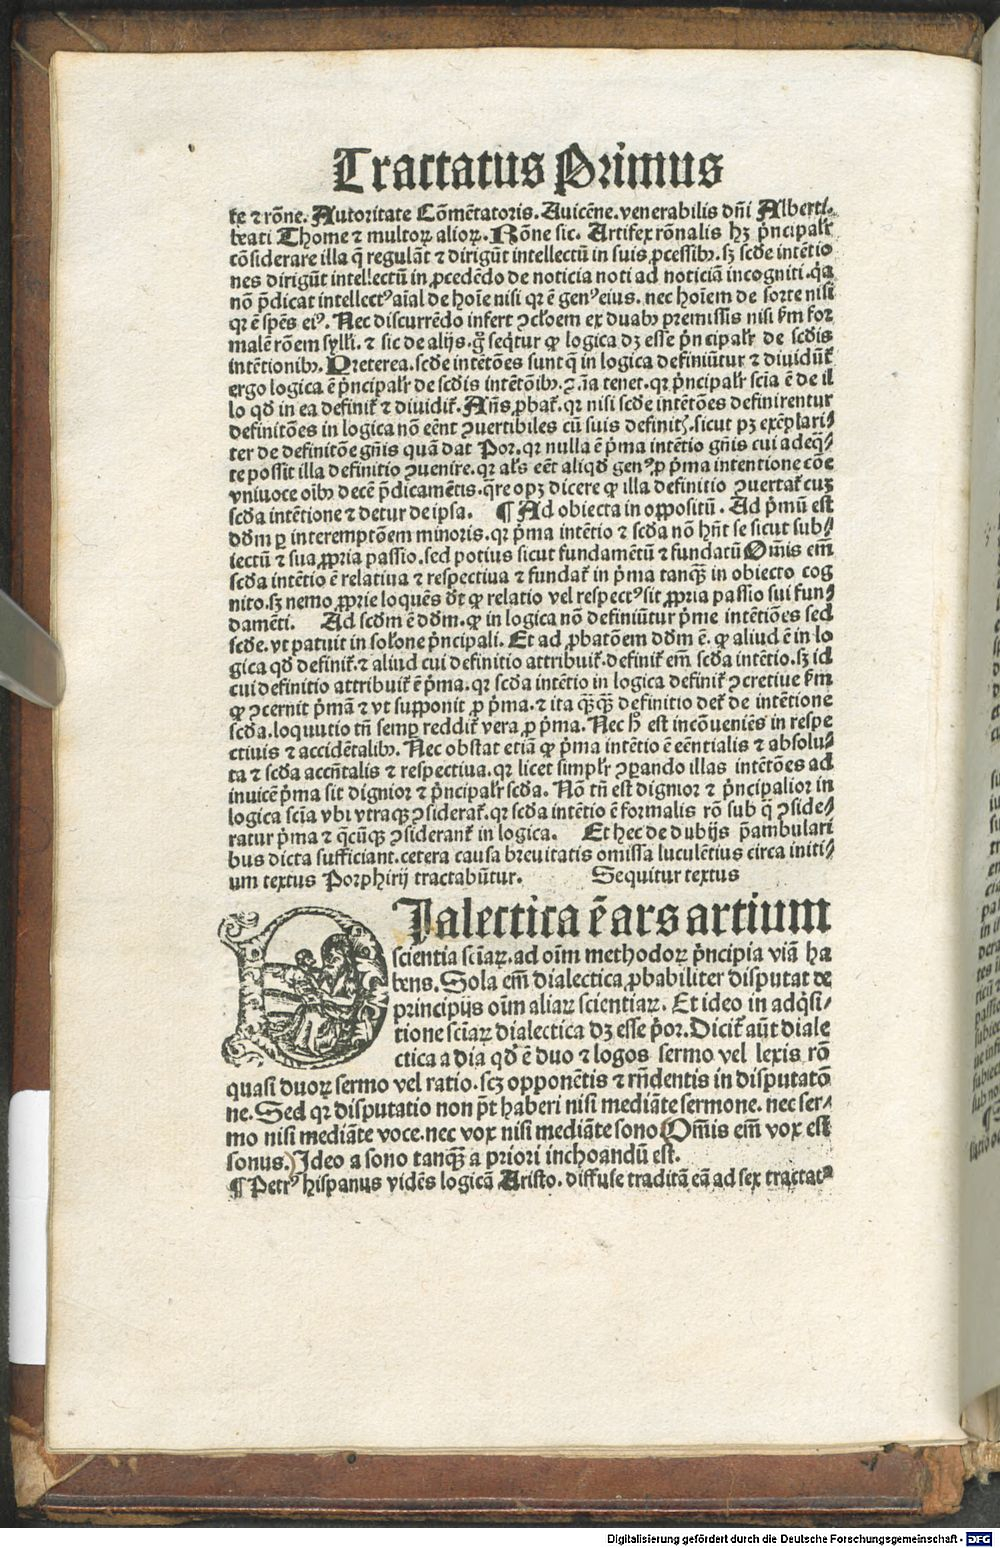 Tractatus Primus
te ⁊ rōne. Autoritate Cōmētatoris. Auicēne. venerabilis dn̄i Alberti.
beati Thome ⁊ multoꝝ alioꝝ. Rōne sic. Artifex rōnalis hꝫ p̄ncipalr̄
cōsiderare illa q̄ regulāt ⁊ dirigūt intellectū in suis ꝓcessibꝰ. sꝫ scd̄e intētio
nes dirigūt intellectū in ꝓcedēdo de noticia noti ad noticiā incogniti. q̄a
nō p̄dicat intellectꝰ aīal de hoīe nisi qꝛ ē genꝰ eius. nec hoīem de sorte nisi
qꝛ ē spēs eiꝰ. Nec discurrēdo infert ꝯcl̄oem ex duabꝰ premissis nisi scd̄m for
malē rōem sylli. ⁊ sic de alijs. g̊ seq̄tur ꝙ logica dꝫ esse p̄ncipalr̄ de scd̄is
intētionibꝰ. Preterea. scd̄e intētōes sunt q̄ in logica definiūtur ⁊ diuidūt̄
ergo logica ē p̄ncipalr̄ de scd̄is intētōibꝰ. ꝯ.̄na tenet. qꝛ p̄ncipalr̄ scīa ē de il
lo qd̄ in ea definit̄ ⁊ diuidit̄. An̄s ꝓbat̄. qꝛ nisi scd̄e intētōes definirentur
definitōes in logica nō eēnt ꝯuertibiles cū suis definitꝭ. sicut pꝫ exēplari⸗
ter de definitōe gn̄is quā dat Por. qꝛ nulla ē p̄ma intētio gn̄is cui adeq̄⸗
te possit illa definitio ꝯuenire. qꝛ al̄s eēt aliqd̄ genꝰ ꝓ p̄ma intentione cōe
vniuoce oībꝰ decē p̄dicamētis. q̄re opꝫ dicere ꝙ illa definitio ꝯuertat̄ cuꝫ
scd̄a intētione ⁊ detur de ipsa. ¶ Ad obiecta in oppositū. Ad p̄mū est
dd̄m ꝑ interemptōem minoris. qꝛ p̄ma intētio ⁊ scd̄a nō hn̄t se sicut sub⸗
iectū ⁊ sua ꝓpria passio. sed potius sicut fundamētū ⁊ fundatū Om̄is em̄
scd̄a intētio ē relatiua ⁊ respectiua ⁊ fundat̄ in p̄ma tanqꝫ̄ in obiecto cog
nito. sꝫ nemo ꝓprie loquēs dt̄ ꝙ relatio vel respectꝰ sit ꝓpria passio sui fun⸗
damēti. Ad scd̄m ē dd̄m. ꝙ in logica nō definiūtur p̄me intētiōes sed
scd̄e. vt patuit in sol̄one p̄ncipali. Et ad ꝓbatōem dd̄m ē. ꝙ aliud ē in lo
gica qd̄ definit̄. ⁊ aliud cui definitio attribuit̄. definit̄ em̄ scd̄a intētio. sꝫ id
cui definitio attribuit̄ ē p̄ma. qꝛ scd̄a intētio in logica definit̄ ꝯcretiue scd̄m
ꝙ ꝯcernit p̄mā ⁊ vt supponit ꝓ p̄ma. ⁊ ita qꝫ̄qꝫ̄ definitio det̄ de intētione
scd̄a. loquutio tn̄ semꝑ reddit̄ vera ꝓ p̄ma. Nec h̄ est incōueniēs in respe
ctiuis ⁊ accidētalibꝰ. Nec obstat etiā ꝙ p̄ma intētio ē eēntialis ⁊ absolu⸗
ta ⁊ scd̄a accn̄talis ⁊ respectiua. qꝛ licet simplr̄ ꝯꝑando illas intētōes ad
inuicē p̄ma sit dignior ⁊ p̄ncipalr̄ scd̄a. Nō tn̄ est dignior ⁊ p̄ncipalior in
logica scīa vbi vtraqꝫ ꝯsiderat̄. qꝛ scd̄a intētio ē formalis rō sub q̄ ꝯside⸗
ratur p̄ma ⁊ q̄cūqꝫ ꝯsiderant̄ in logica. Et hec de dubijs p̄ambulari
bus dicta sufficiant. cetera causa breuitatis omissa luculētius circa initi⸗
um textus Porphirij tractabūtur. Sequitur textus
Dialectica ē ars artium
scientia scīaꝝ. ad oīm methodoꝝ p̄ncipia viā ha
bens. Sola em̄ dialectica ꝓbabiliter disputat de
principijs oīm aliaꝝ scientiaꝝ. Et ideo in adq̄si⸗
tione scīaꝝ dialectica dꝫ esse p̄or. Dicit̄ aūt diale
ctica a dia qd̄ ē duo ⁊ logos sermo vel lexis rō
quasi duoꝝ sermo vel ratio. scꝫ opponētis ⁊ rn̄dentis in disputatō
ne. Sed qꝛ disputatio non p̄t haberi nisi mediāte sermone. nec ser⸗
mo nisi mediāte voce. nec vox nisi mediāte sono Om̄is em̄ vox est
sonus. Ideo a sono tanqꝫ̄ a priori inchoandū est.
¶ Petrꝰ hispanus vidēs logicā Aristo. diffuse traditā eā ad sex tractatꝰ
Digitalisierung gefördert durch die Deutsche Forschungsgemeinschaft - DFG